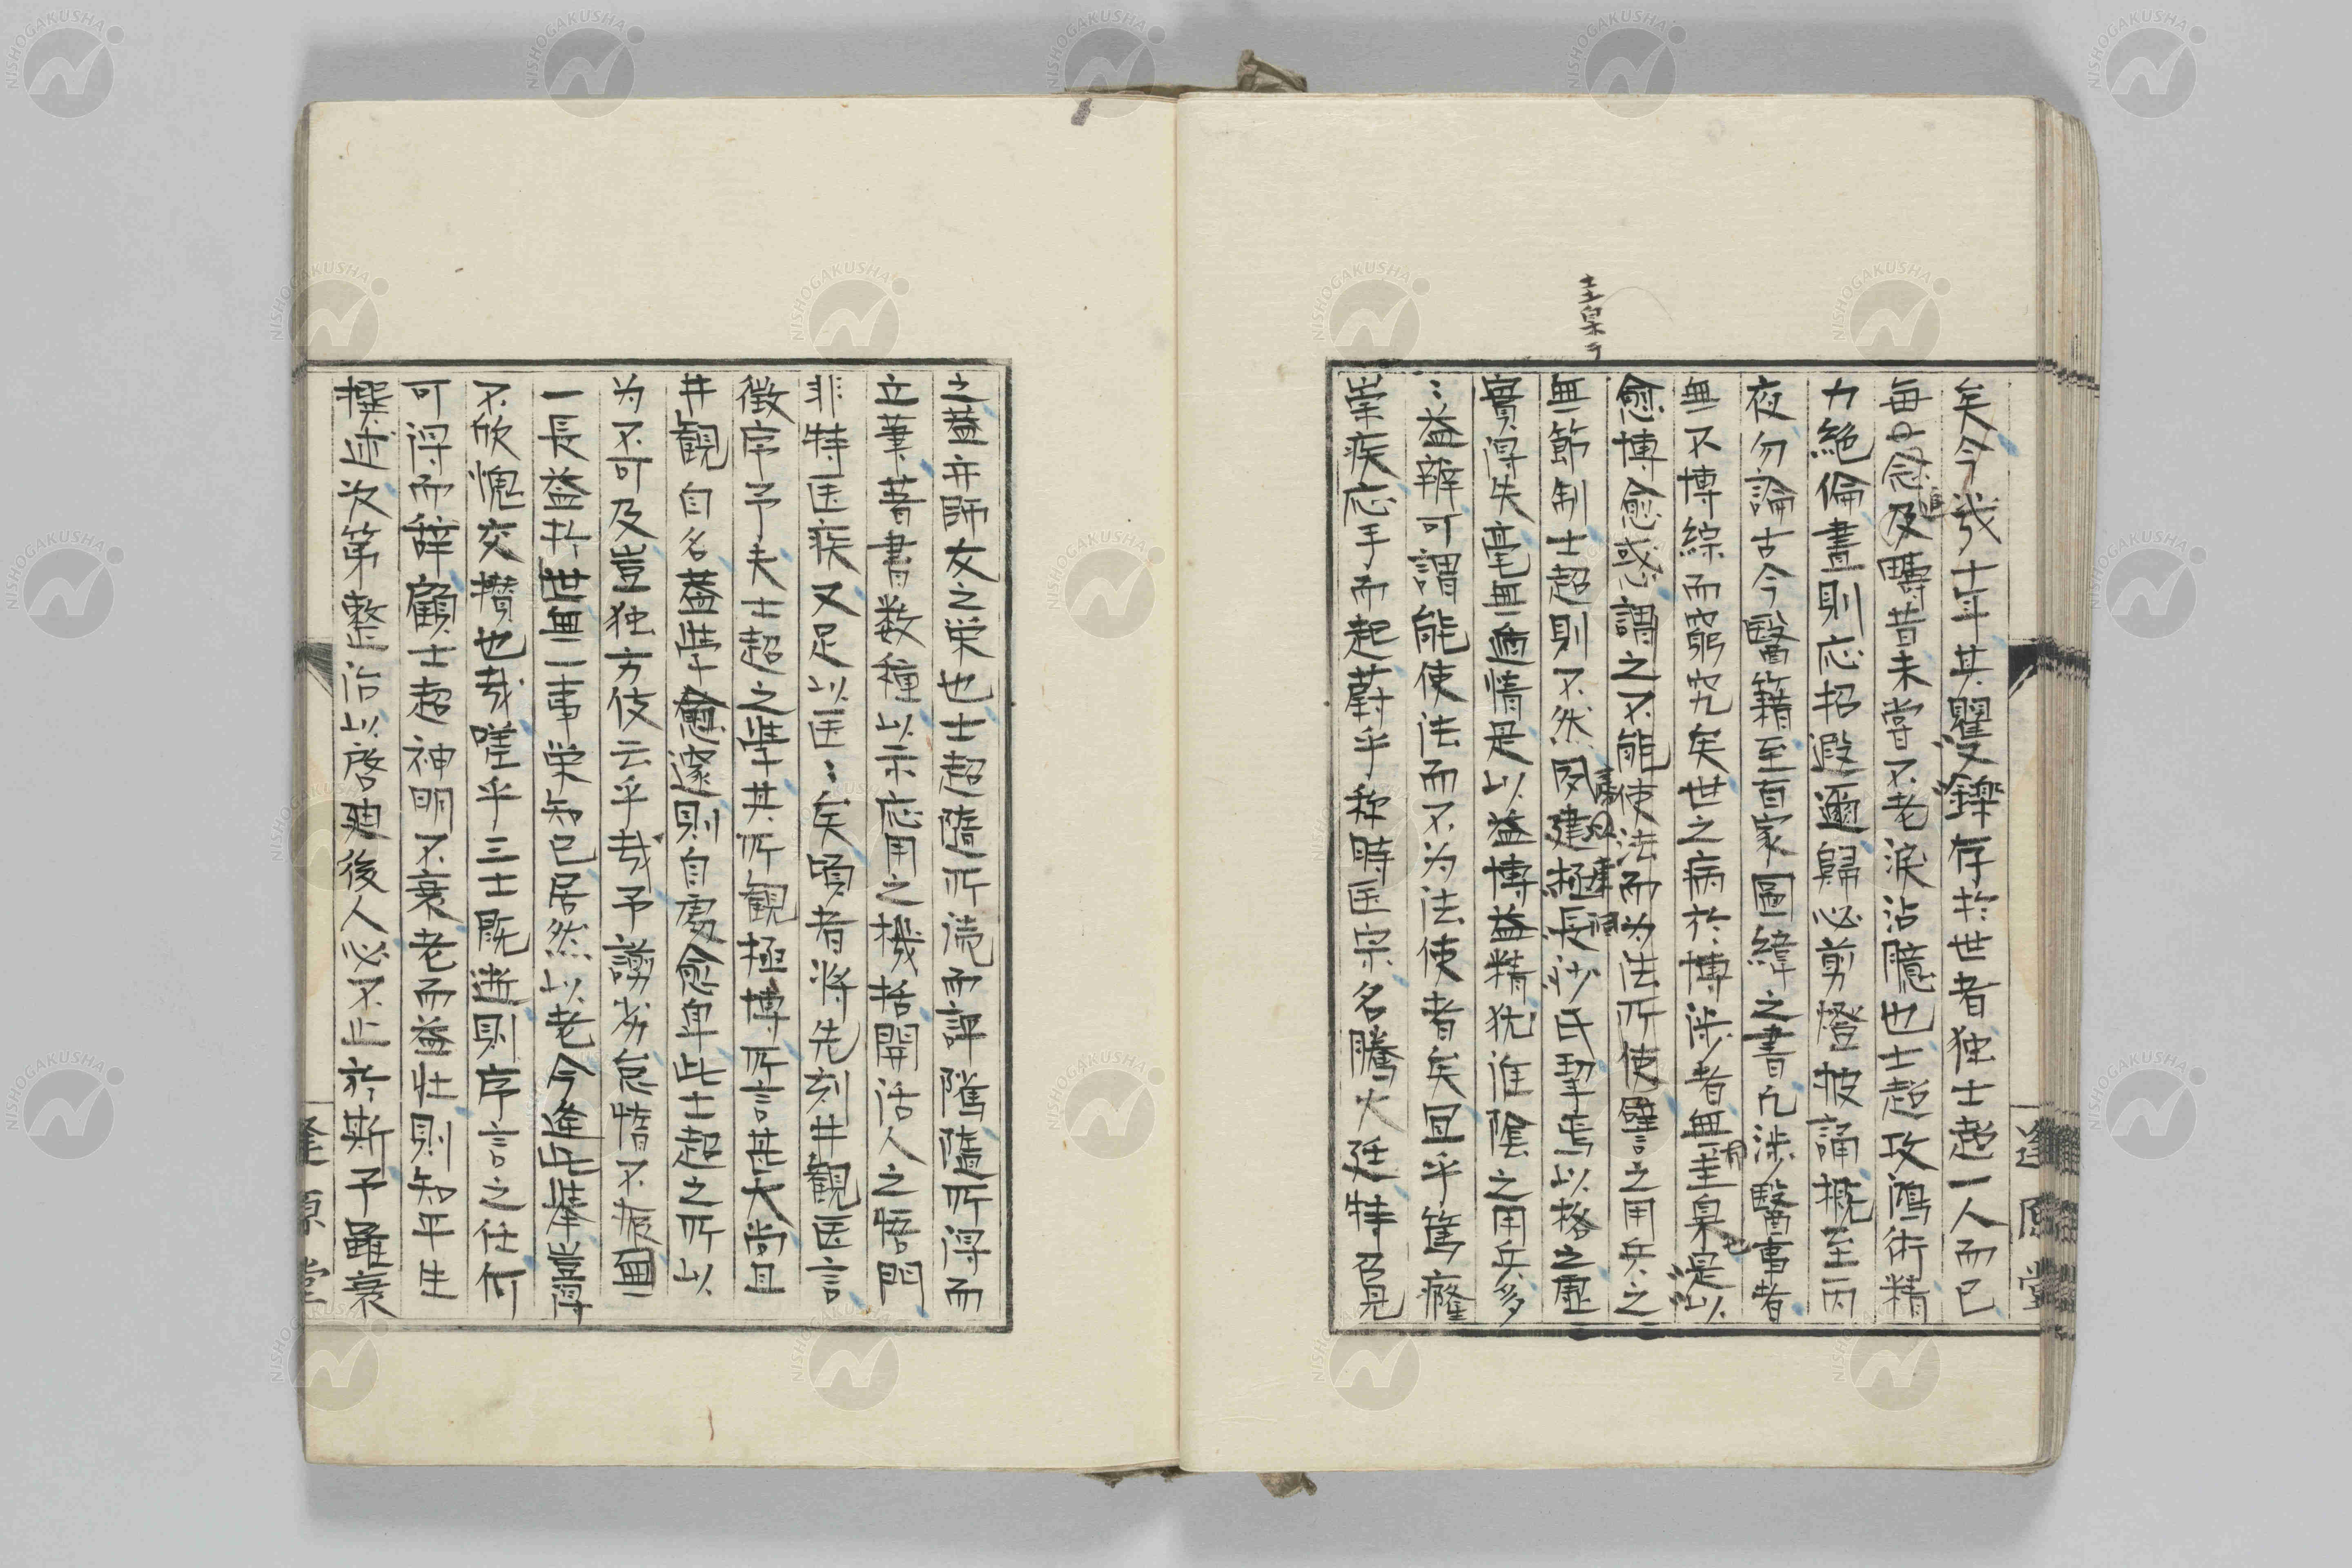 圭臬ヲ
矣今幾十年其矍鑠存於世者独士超一人而已
毎念及疇昔未嘗不老涙沾臆也士超攻瀉術精
力絶倫晝則応招遐邇歸必剪燈披誦概至丙
夜勿論古今醫籍至百家圖緯之書凡渉醫事者
無不博綜而窮究矣世之病於博渉者無圭臬是以
愈博愈惑謂之不能使法而为法所使譬之用兵之
無節制士超則不然建極長沙氏挈焉以格之虚
實得失毫無遁情是以益博益精猶淮陰之用兵多
〻益辨可謂能使法而不为法使者矣冝乎篤癃
崇疾応手而起蔚乎称時医宗名騰火廷特見
逢原堂
之蓋亦師友之栄也士超隨所徳而評隲隨所得而
立筆著書数種以示応用之機括開活人之悟門
非特医疾又足以医〻矣頃者将先刻井觀医言
徴序予夫士超之學其所觀極博所言甚大尚且
井觀自名蓋學愈邃則自處愈卑此士超之所以
为不可及豈独方伎云乎哉予謭劣怠惰不痕
一長益於世無一事栄知已居然以老今逢此擧豈得
不欣愧交攅也哉嗟乎三士既逝則序言之任何
可得而辞顧士超神明不衰老而益壮則知平生
撰述次第整治以啓廸後人必不止於斯予雖衰
逢原堂